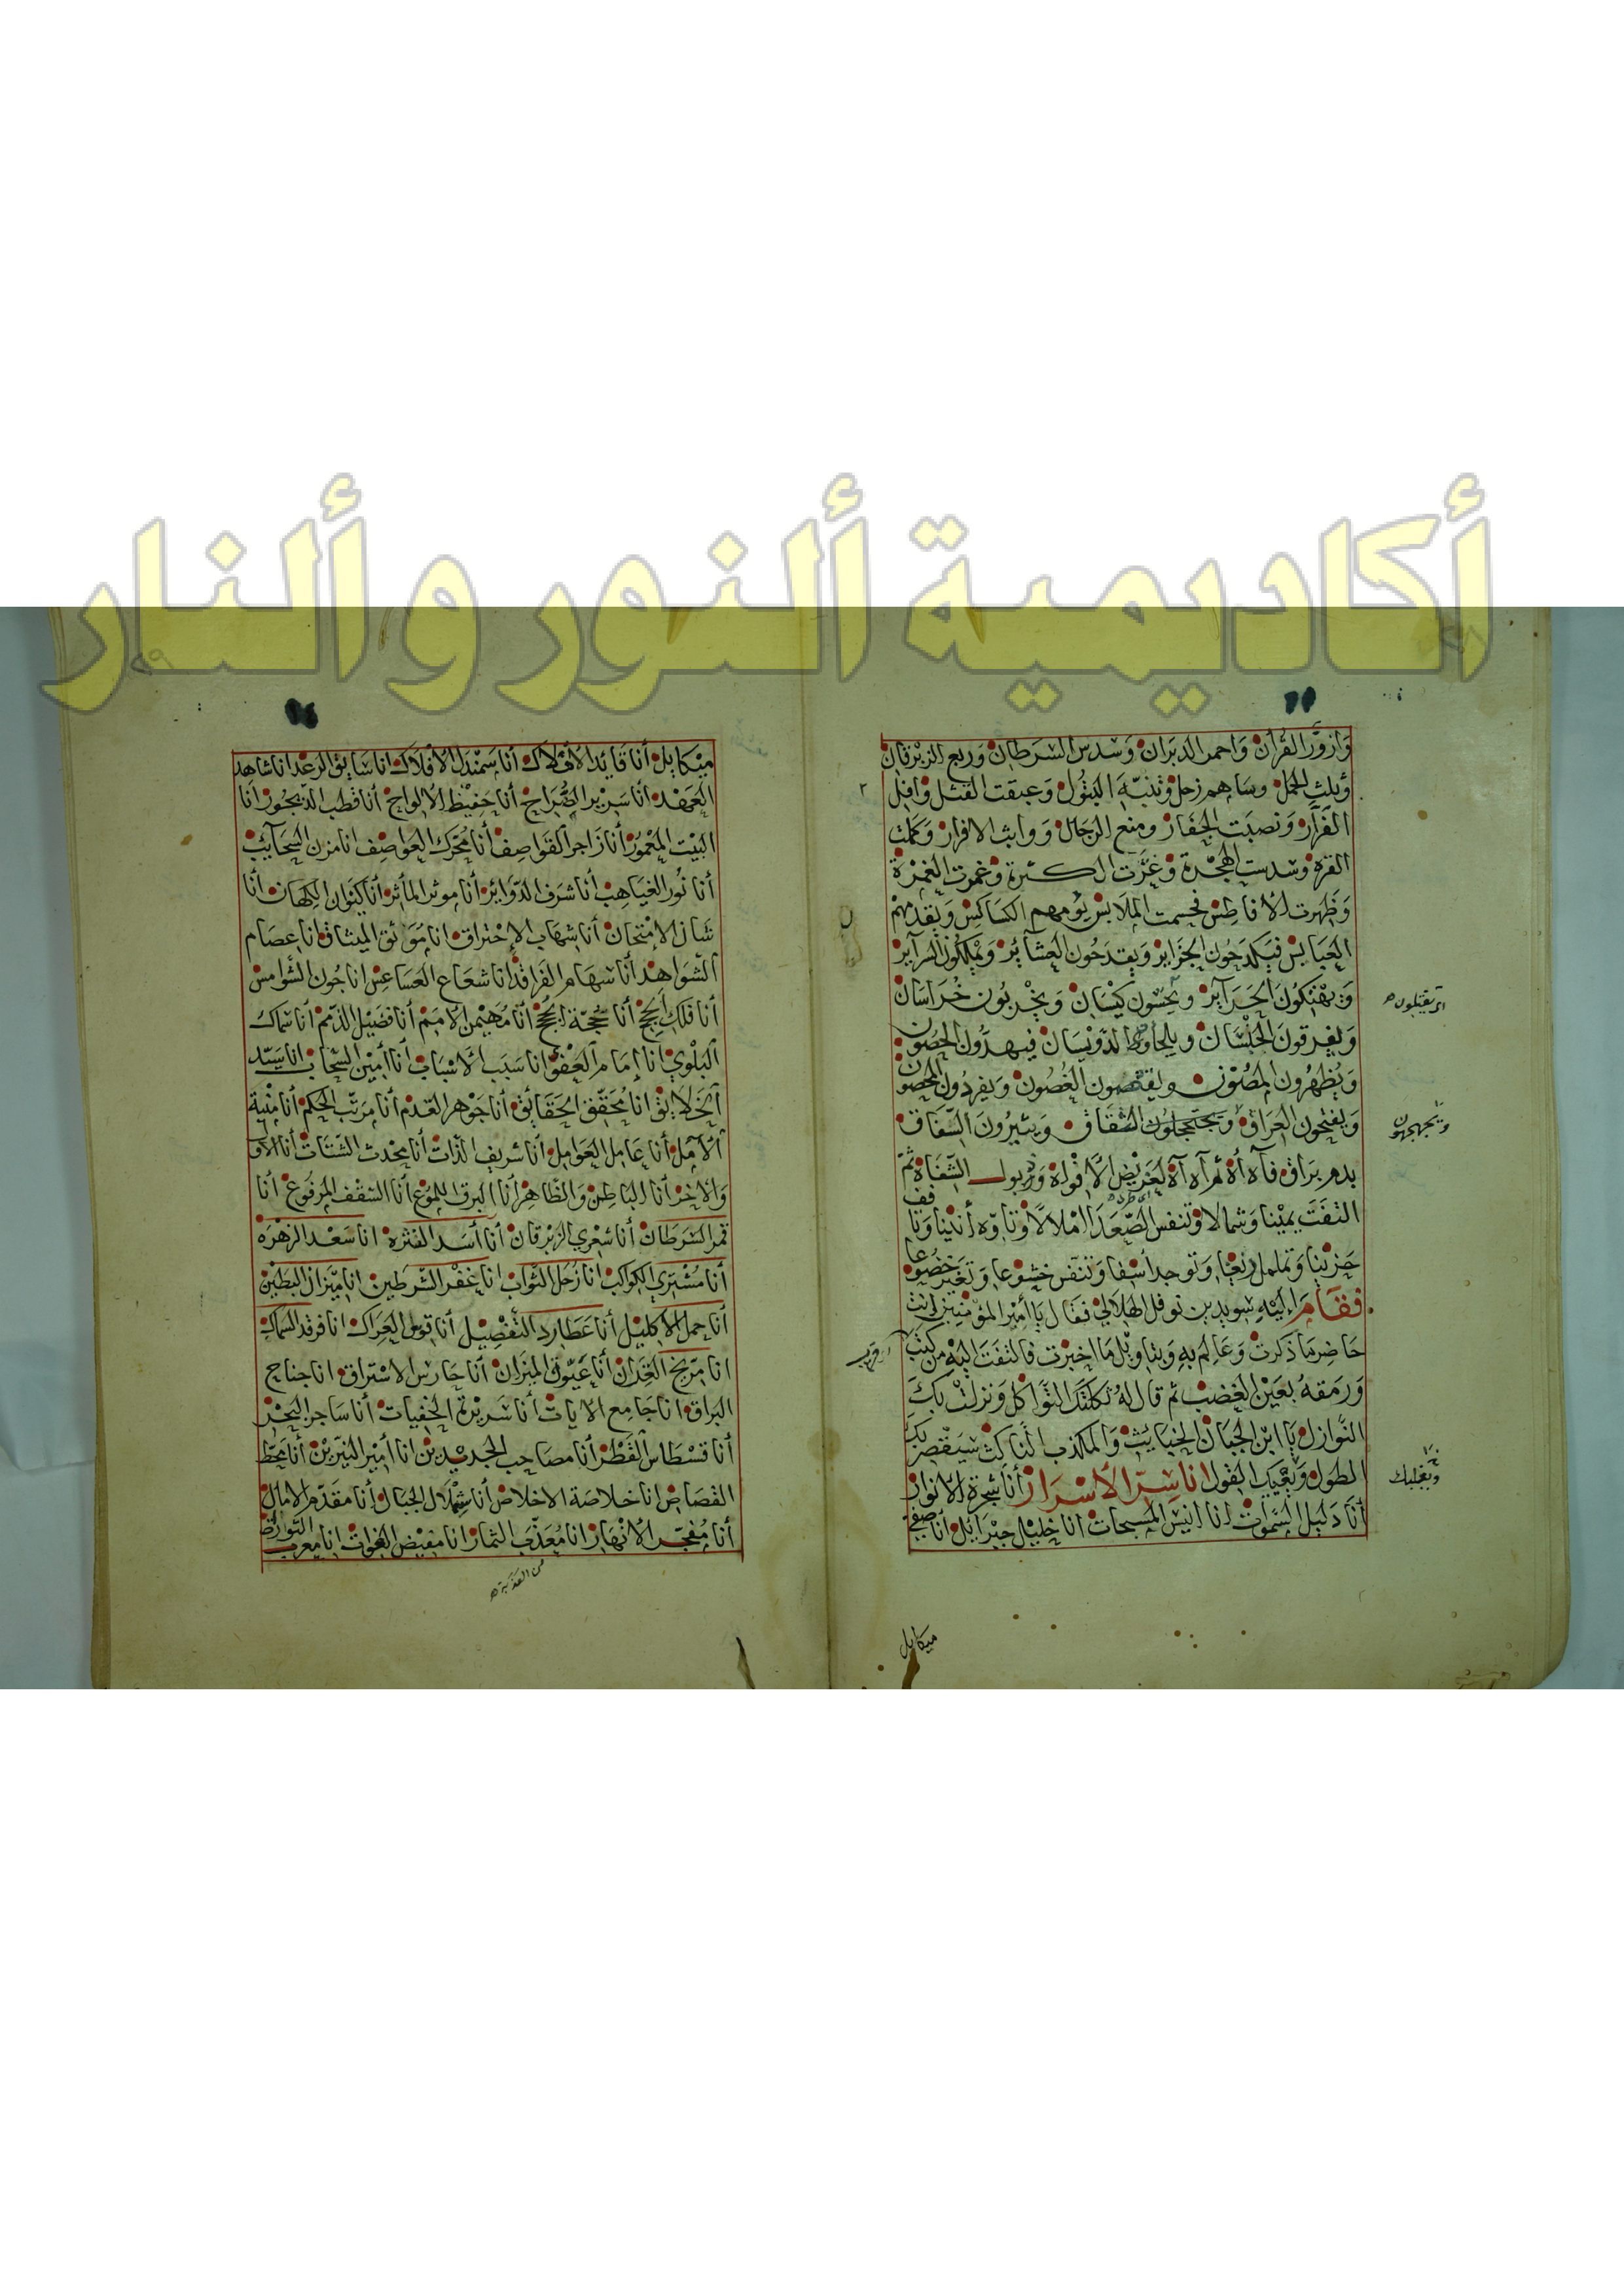 أكاديمية ألنور و ألنار
وَازورَّ القرآن وَاحمر الدبَران وَسُدس السَرطان وَربع الزبرقان
وثلث الحمل وسَاهم زحل وتنبّه البتول وَعبقت القتل وافل
الفرار ونصبَت الجفار ومنع الرجال وواثب الافرار وكملت
الفترة وسُدست الهجرة وغزّت الكثرة وغمرت الغمرَة
وَظهرت الافاطس فحسمت الملابس يؤمهم الكساكس وَيقدمهم
العبَابس فيكدحون الجزاير وَيقدحُون العشاير وَيملكون السراير
وَيهتكون الحرَاير ويحسون كيسان ويخربون خراسان
وَيفرقون الحلسَان ويلحاوط الدوَيسَان فيهدّون الحصُون
وَيُظهرون المصُون ويقتصمون الغُصُون ويفردون المحصون
وَيفتحون العراق وَيحتجلون الشقاق ويثيرُون السّفاق
بدم يراق فآه أه ثم آه آه لعَريض الأفواه وذبول الشّفاه ثمّ
التفت يمينا وَشمالا وتنفس الصّعَدَا املالا وتاوّه أنينا
حَزينا وتململ ربعَيا وَتوجد أسفا وَتنفس خشوعا وَتغير خضوعا
فقَامَ إليه سويد بن نوفل الهلالي فقال يا أمير المؤمنين انت
حَاضر ما ذكرت وَعَالم به وَبتاويل ما اخبرت فالتفت اليه من كثب
وَرمقه بعَين الغضب ثم قال له ثكلتك الثّواكل وَنزلت بك
النّوازل يا ابن الجبَان الخبايث وَالمكذب الناكث سيَقصر بك
الطول ويعجبك القول انا سِرّ الأسْرار أنا شجرة الانوار
أنا دَليل السّموات انا انيس المسبحات انا خليل جبرايل انا صفي
ايريقتلون
ويجهجهون
قريب
ويغلبك
ميكايل
ميكايل أنا قائد الاملاك أنا سَمندل الافلاك انا سَايق الرعد انا شاهد
العَهد انا سَرير الصّراح أنا حَفيظ الالواح أنا قطب الدّيجور انا
البَيت المعمُور أنا زَاجر القواصف أنا محَرك العواصف انا مزن السّحايب
أنا نُور الغيَاهب أنا شرَف الدّوَاير أنا موثر المأثر أنا كيوان الكهان أنا
شَان الامتحان أنا شهاب الاحتراق انا مُوَاثق الميثاق انا عصَام
الشّوَاهد أنا سهَام الفراقد انا شعَاع العسَاعس انا جُون الشّوامس
أنا فلك اللجج أنا حُجّة الحجج أنا مُهَيمن الامَم أنا فضيل الذّمم أنا سماك
البلوي انا إمَام العفو انا سَبَب الأسبَاب أنا أمين السّحاب انا سَيّد
الخَلايق انا مُحقّق الحَقايق أنا جَوهر القدَم أنا مرَتّب الحكم أنا منيَة
الآمل أنا عَامل العَوامل أنا شريف الذّات أنا محدث الشّتات أنا الأوّل
وَالاخر أنا الباطن وَالظّاهر أنا البرق اللموع أنا السَقف المرفُوع أنا
قمر السَرطان أنا شعري الزبرقان أنا أسَد النثرة انا سَعد الزهرَه
أنا مُشتري الكواكب انا زُحَل الثّواقب انا غفر الشّرَطين انا ميزان البطين
أنا حمل الاكليل أنا عَطارد التّفضِيل أنا قوس العِراك انا فرقد السّماك
انا مرّيخ القِران أنا عَيّوق الميزان أنا حَارس الاستراق انا جناح
البراق انا جَامع الايات أنا سَريرة الخفيات أنا سَاجر البحر
أنا قسطاس القطر أنا مصَاحب الجديدين انا أمير النيّرين أنا محَط
القصَاص انا خلاصَة الاخلاص أنا شملال الجبال أنا مقدّم الامال
أنا مُفجّر الانهَار انا مُعَذّب الثمار انا مفيض الفرات انا معرب التوراة
من العذوبة